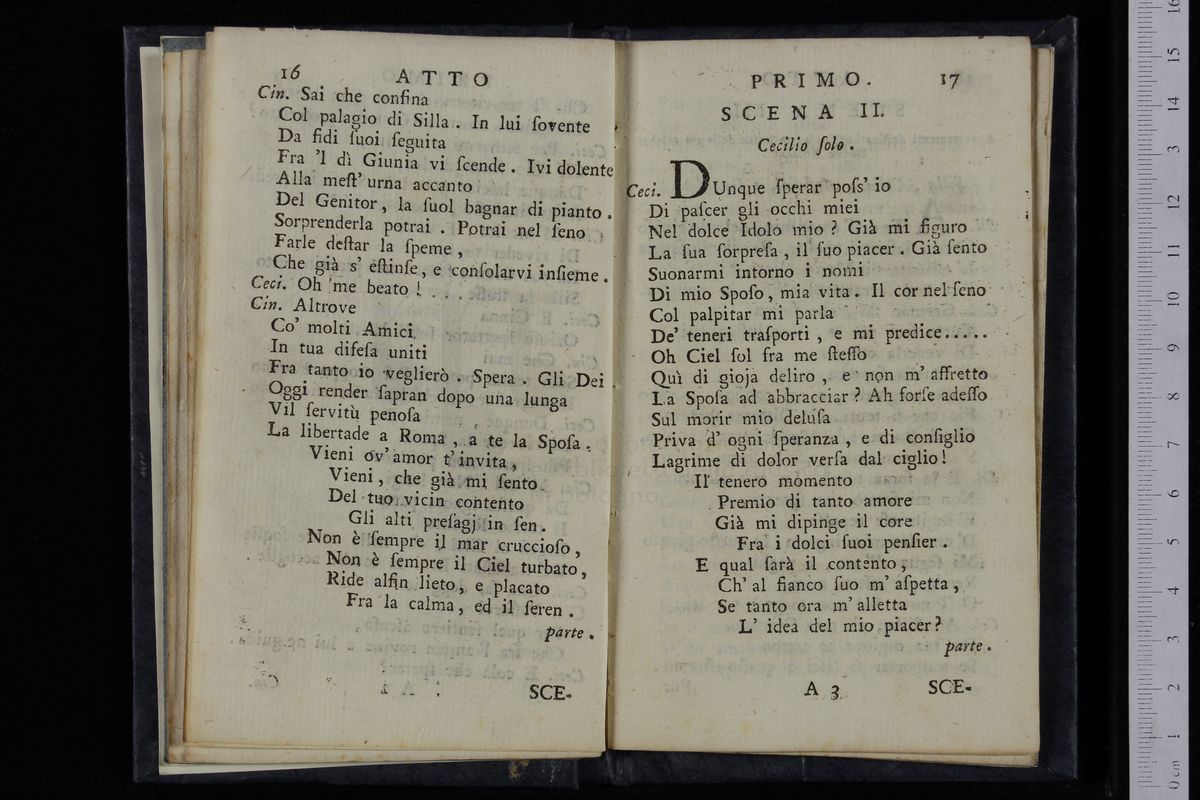 16 ATTO
Cin. Sai che confina
Col palagio di Silla . In lui ſovente
Da fidi ſuoi ſeguita
Fra 'l dì Giunia vi ſcende . Ivi dolente
Alla meſt' urna accanto
Del Genitor, la ſuol bagnar di pianto .
Sorprenderla potrai . Potrai nel ſeno
Farle deſtar la ſpeme ,
Che già s' eſtinſe, e conſolarvi inſieme .
Ceci. Oh me beato ! . . .
Cin. Altrove
Co' molti Amici
In tua difeſa uniti
Fra tanto io veglierò . Spera . Gli Dei
Oggi render ſapran dopo una lunga
Vil ſervitù penoſa
La libertade a Roma , a te la Spoſa .
Vieni ov' amor t' invita ,
Vieni , che già mi ſento
Del tuo vicin contento
Gli alti preſagj in ſen .
Non è ſempre il mar cruccioſo ,
Non è ſempre il Ciel turbato ,
Ride alfin lieto , e placato
Fra la calma , ed il ſeren .
parte .
SCE-
PRIMO. 17
SCENA II.
Cecilio ſolo .
Ceci. DUnque ſperar poſs' io
Di paſcer gli occhi miei
Nel dolce Idolo mio ? Già mi figuro
La ſua ſorpreſa , il ſuo piacer . Già ſento
Suonarmi intorno i nomi
Di mio Spoſo , mia vita . Il cor nel ſeno
Col palpitar mi parla
De' teneri traſporti , e mi predice.....
Oh Ciel ſol fra me ſteſſo
Quì di gioja deliro , e non m' affretto
La Spoſa ad abbracciar ? Ah forſe adeſſo
Sul morir mio deluſa
Priva d' ogni ſperanza , e di conſiglio
Lagrime di dolor verſa dal ciglio !
Il tenero momento
Premio di tanto amore
Già mi dipinge il core
Fra i dolci ſuoi penſier .
E qual ſarà il contento ,
Ch' al fianco ſuo m' aſpetta ,
Se tanto ora m' alletta
L' idea del mio piacer ?
parte .
A 3 SCE-
0 cm 1 2 3 4 5 6 7 8 9 10 11 12 3 14 15 16